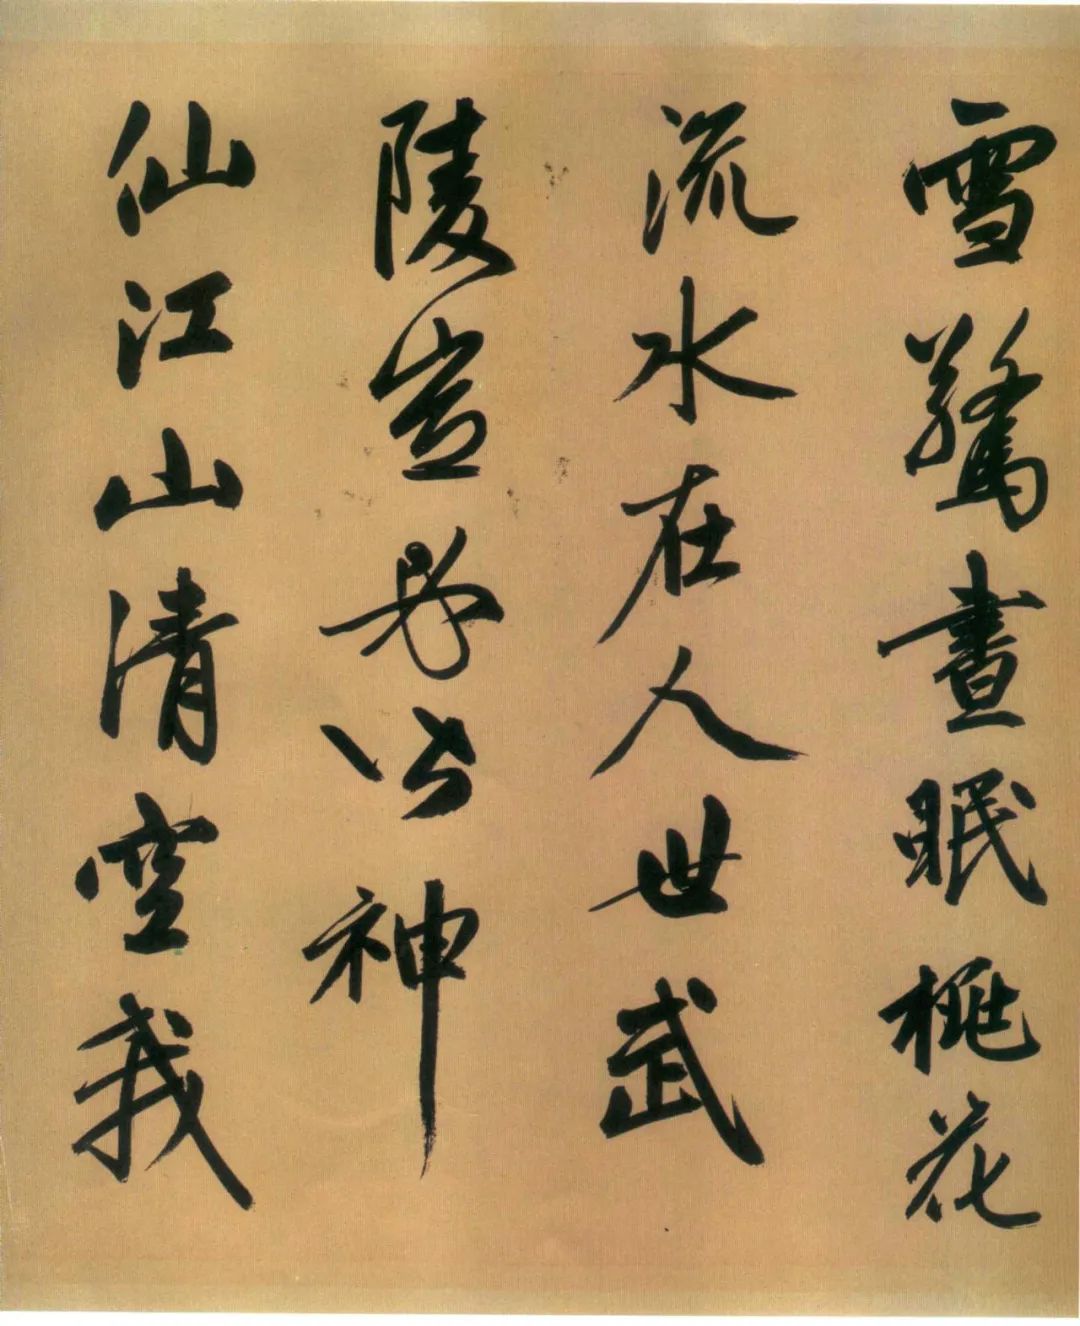 雪鶩晝眠桃花
流水在人世武
陵豈必皆神
仙江山清空我